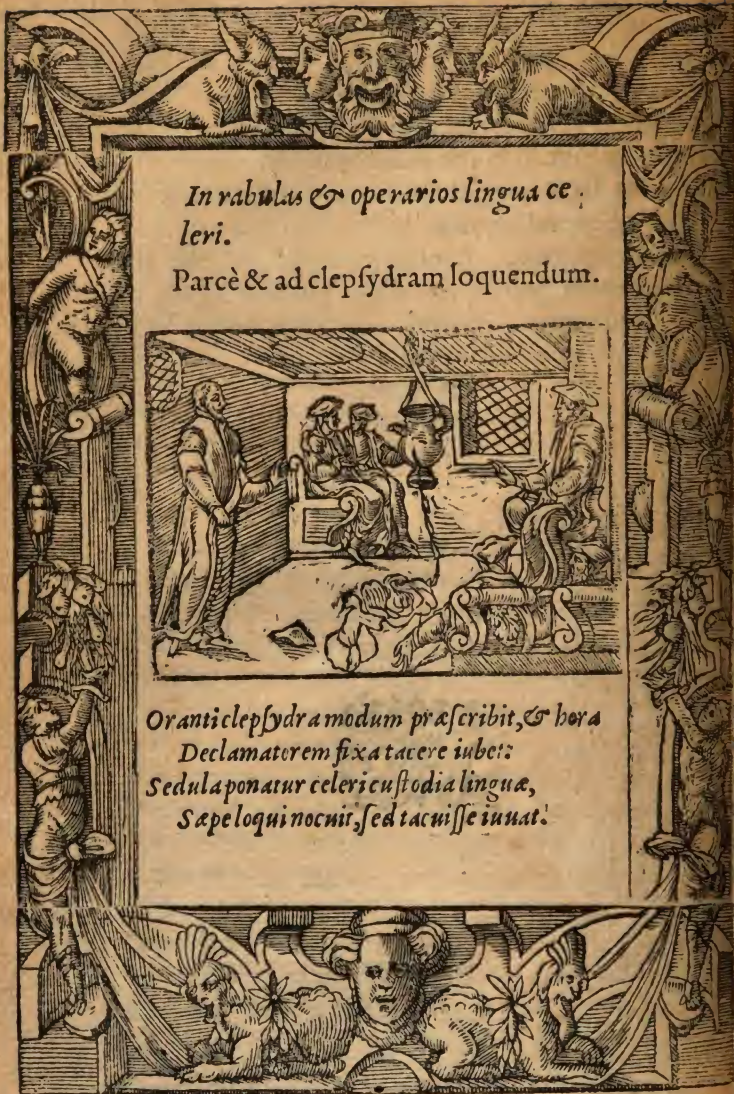 In rabulas & operarios lingua ce
leri.
Parcè & ad clepſydram loquendum.
Oranti clepſydra modum præſcribit, & hora
Declamatorem fixa tacere iubet:
Sedula ponatur celeri cuſtodia linguæ,
Sæpe loqui nocuit, ſed tacuiſſe iuuat.